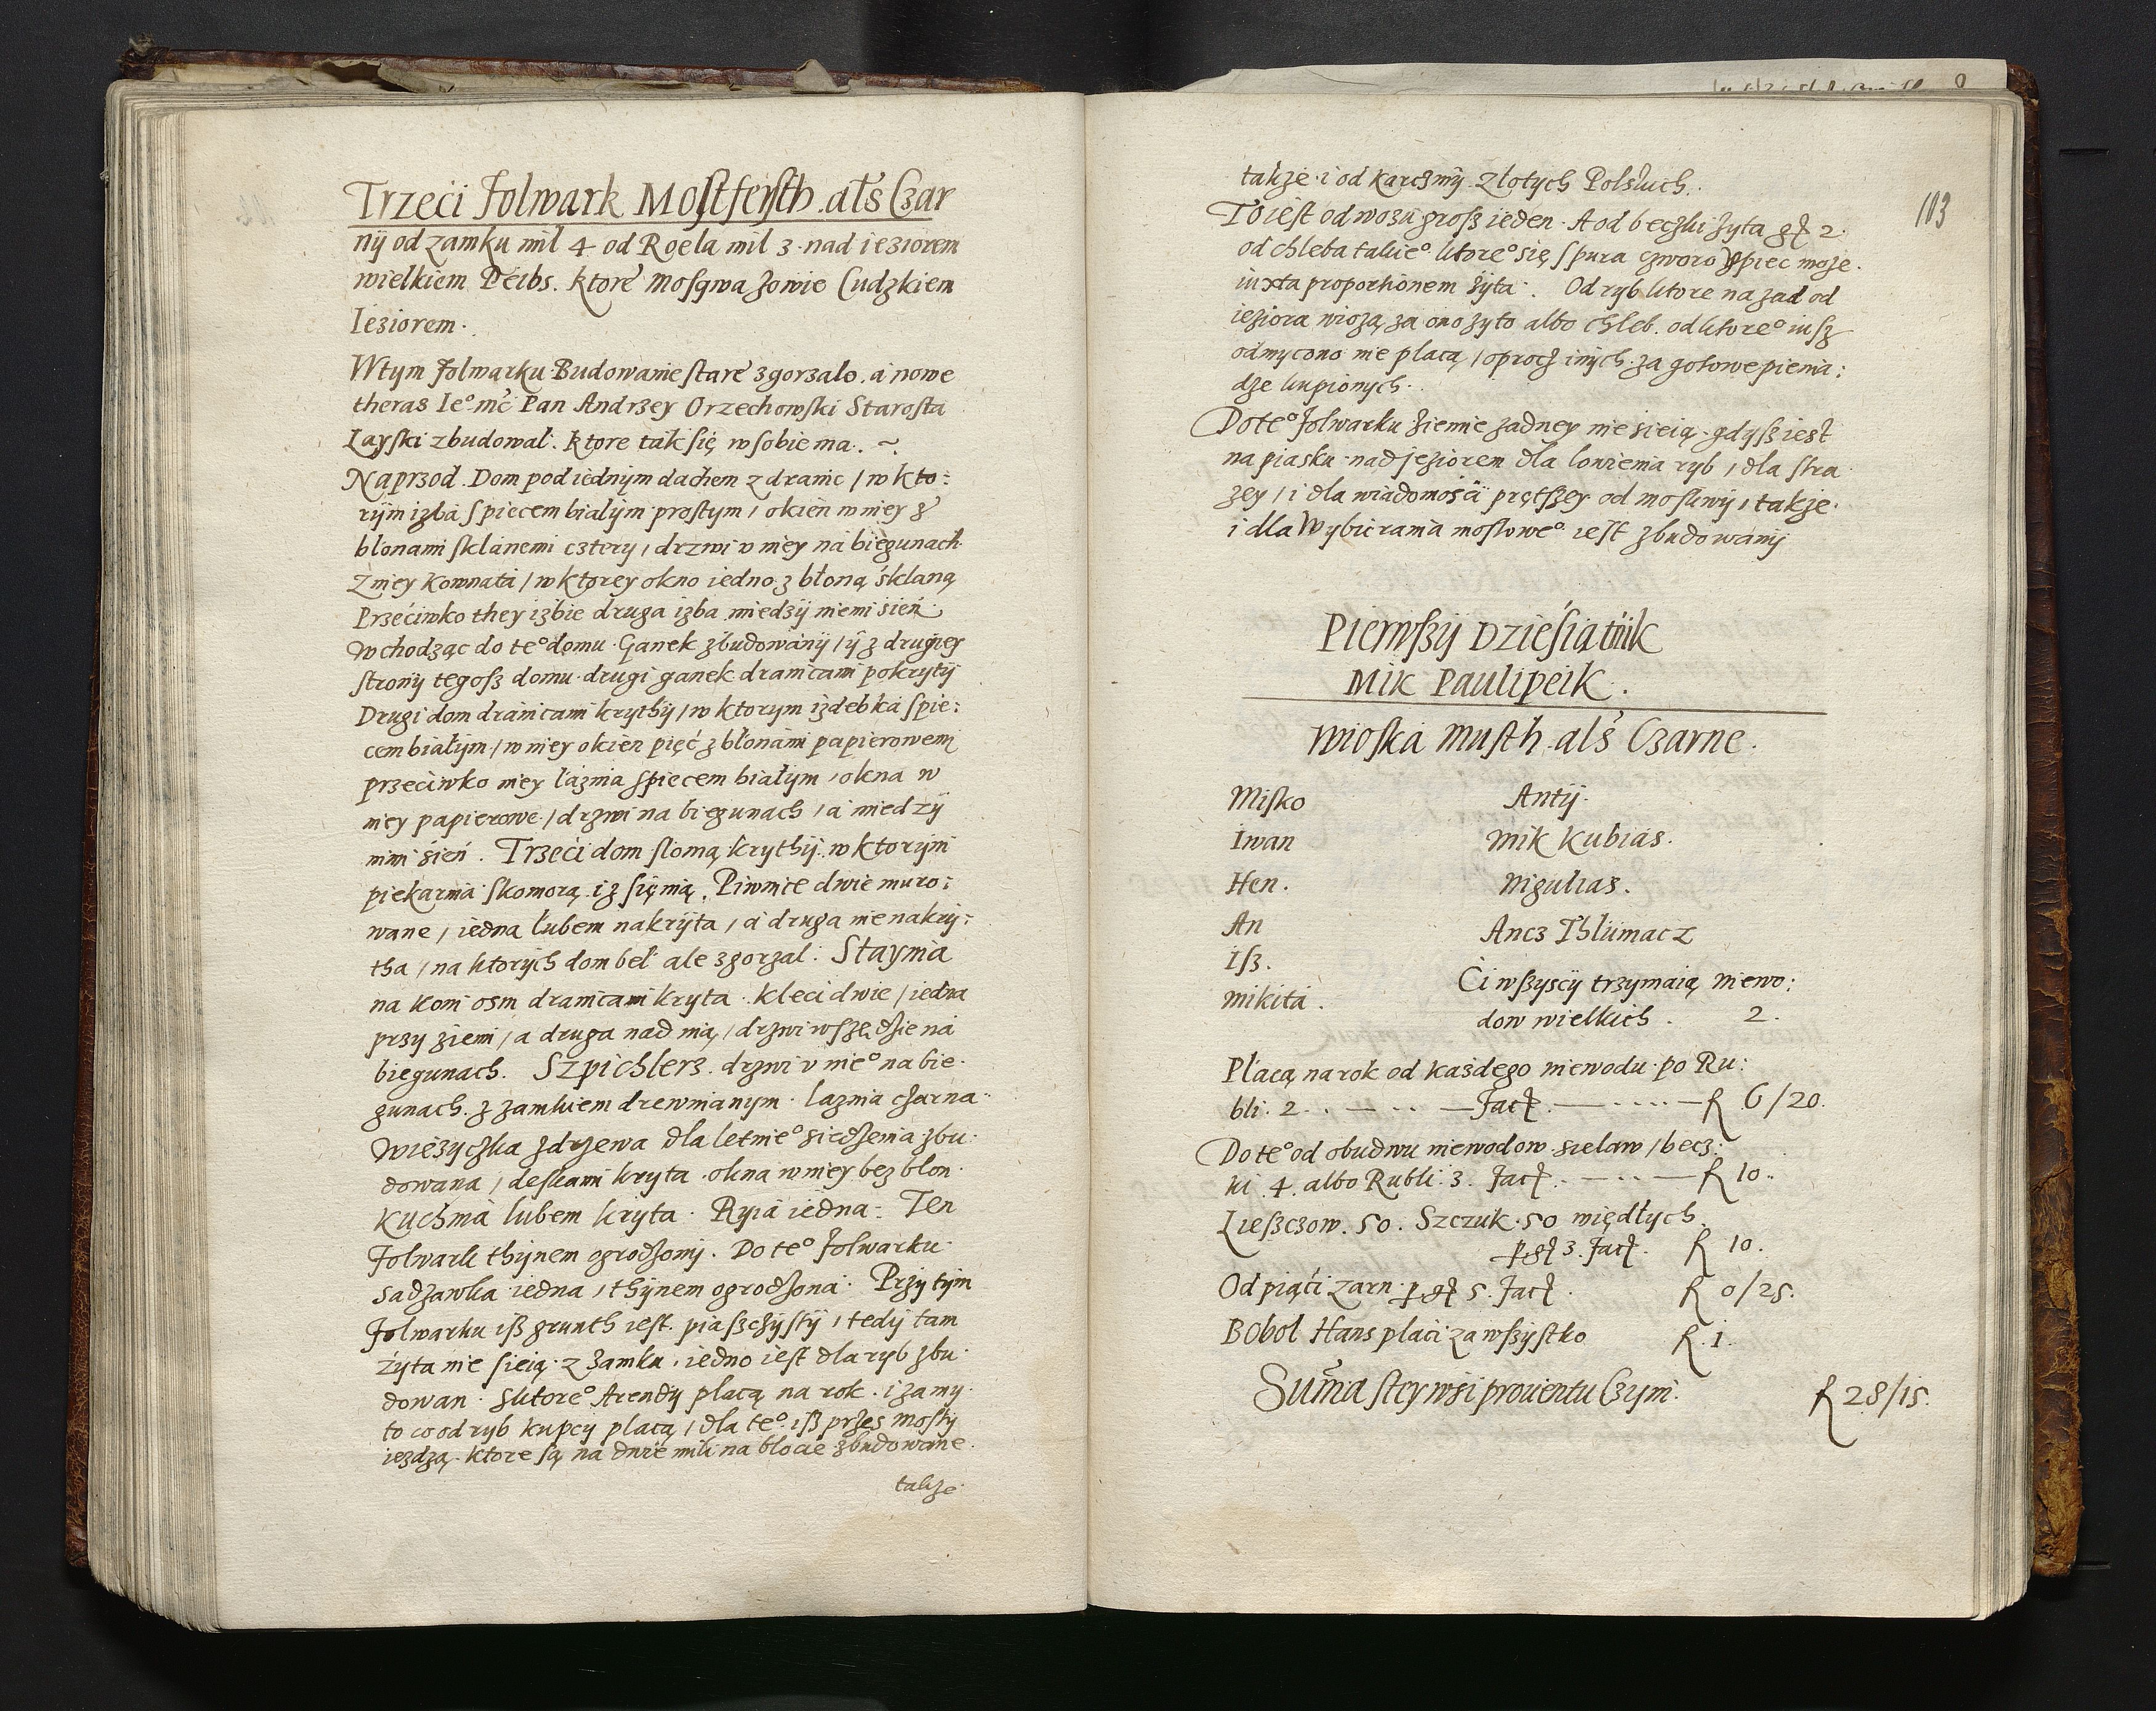 Trzeci Folwark Mostferth. als Czar
nij od zamku mil 4 od Roela mil 3. nad ieziorem
wielkiem Peibs. ktore Mosqwa zowie Cudzkiem
Ieziorem.
W tym Folwarku Budowanie stare zgorzalo. a nowe
theras Ie° mc Pan Andrzey Orzechowski Starosta
Layski zbudowal. ktore tak się w sobie ma.
Naprzod. Dom pod iednym dachem z dranic / w kto:
rijm izba s piecem białym prostym / okien w niey z
blonami sklanemi cztery / drzwi v niey na biegunach
Z niey Kownata / w ktorey okno iedno z błoną sklaną
Przeciwko they izbie druga izba miedzij niemi sień.
Wchodząc do te° domu. Ganek zbudowanij / ÿ z drugiey
stronij tegosz domu. drugi ganek dranicami pokrytij
Drugi dom dranicami krythij / w ktorym izdebka s pie:
cem białym / w niey okien pięć z błonami papierowemi
przeciwko niey łaznia s piecem białym / okna w
niey papierowe / drzwi na biegunach / a miedzij
nimi sień. Trzeci dom slomą krythij. w ktorijm
piekarnia s komorą. i z sięnią. Piwnice dwie muro:
wane / iedna łubem nakrijta / a druga nie nakrij:
tha / na ktorijch dom beł ale zgorzal. Staynia
na koni osm dranicami kryta. Kleci dwie / iedna
przy ziemi / a druga nad nią / drzwi wszędzie na
biegunach. Szpichlerz. drzwi v nie° na bie.
gunach. z zamkiem drewnianym. laznia czarna.
Wieżyczka z drzewa dla letnie° siedzenia zbu.
dowana / deskami kryta. okna w niey bez blon.
Kuchnia lubem kryta. Ryia iedna. Ten
Folwark thijnem ogrodzonij. Do te° Folwarku
sadzawka iedna / thijnem ogrodzona. Przy tijm
Folwarku isz grunth iest. piaszczystij / tedij tam
żyta nie sieią. z Zamku. iedno iest dla ryb zbu.
dowan. s ktore° Arendij placą na rok. i za my.
to co od ryb kupcy placą / dla te° isz przes mosty
iezdzą. ktore są na dwie mili na blocie zbudowane.
takze.
103
takze. i od karczmij. zlotych Polskich.
To iest od wozu grosz ieden. A od beczki żyta gł 2.
od chleba takie° ktore° się s pura czworo spiec moze.
iuxta proportionem żyta. Od ryb ktore na zad od
ieziora wiozą za ono zyto albo chleb. od ktore° iusz
odmycono nie placą / oprocz inych. za gotowe pienia:
dze kupionych.
Do te° Folwarku ziemie zadney nie sieią. gdysz iest
na piasku. nad jeziorem dla lowienia ryb / dla stra
zey / i dla wiadomości prętszey od moskwij / takze.
i dla Wybierania mostowe° iest zbudowanij
Pierwszij Dziesiątnik
Mik Paulipeik.
Wioska Musth. als Czarne.
Misko Antij.
Iwan Mik Kubias.
Hen. Nigulias.
An Ancz Thlumacz
Isz.
Mikita.
Ci wszyscij trzymaią Niewo:
dow wielkich. 2.
Placą na rok od kazdego niewodu. po Ru:
bli. 2. Facţ. f 6/20.
Do te° od obudwu niewodow sielaw / becz:
ki. 4. albo Rubli. 3. Facţ. f 10.
Lieszczow. 50. Szczuk. 50 więdłych.
p gł 3. Facţ. f 10.
Od piąci zarn. p gł 5. Facţ. f 0/25.
Bobol Hans placi za wszijstko f. 1.
Suma s tey wsi prouentu Czyni. f 28/15.